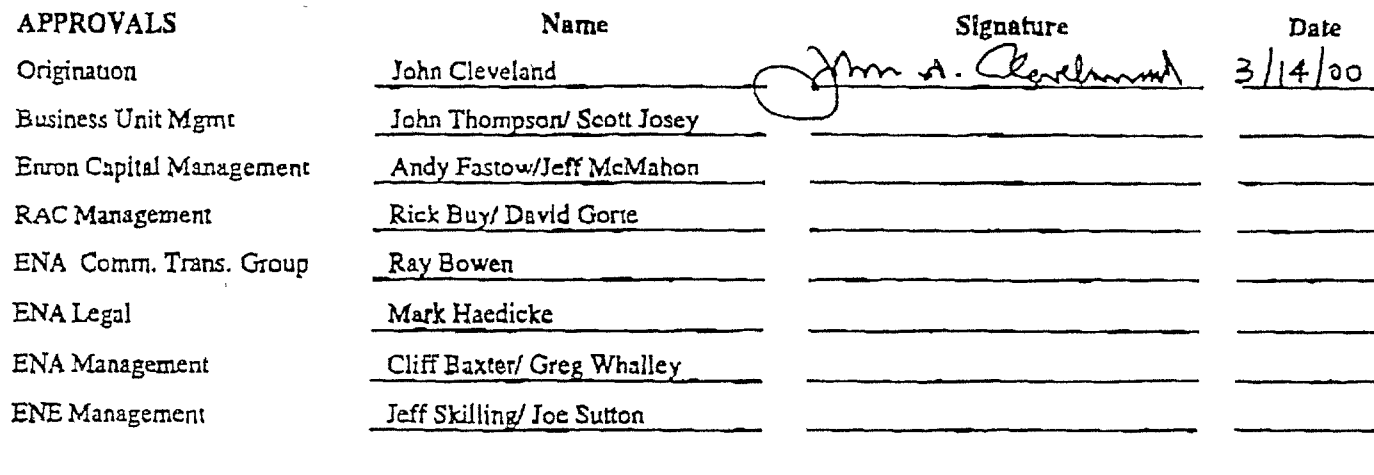 APPROVALS Name Signature Date
Origination John Cleveland John A. Cleveland 3/14/00
Business Unit Mgmt John Thompson/ Scott Josey
Enron Capital Management Andy Fastow/Jeff McMahon
RAC Management Rick Buy/ David Gorte
ENA Comm. Trans. Group Ray Bowen
ENA Legal Mark Haedicke
ENA Management Cliff Baxter/ Greg Whalley
ENE Management Jeff Skilling/ Joe Sutton